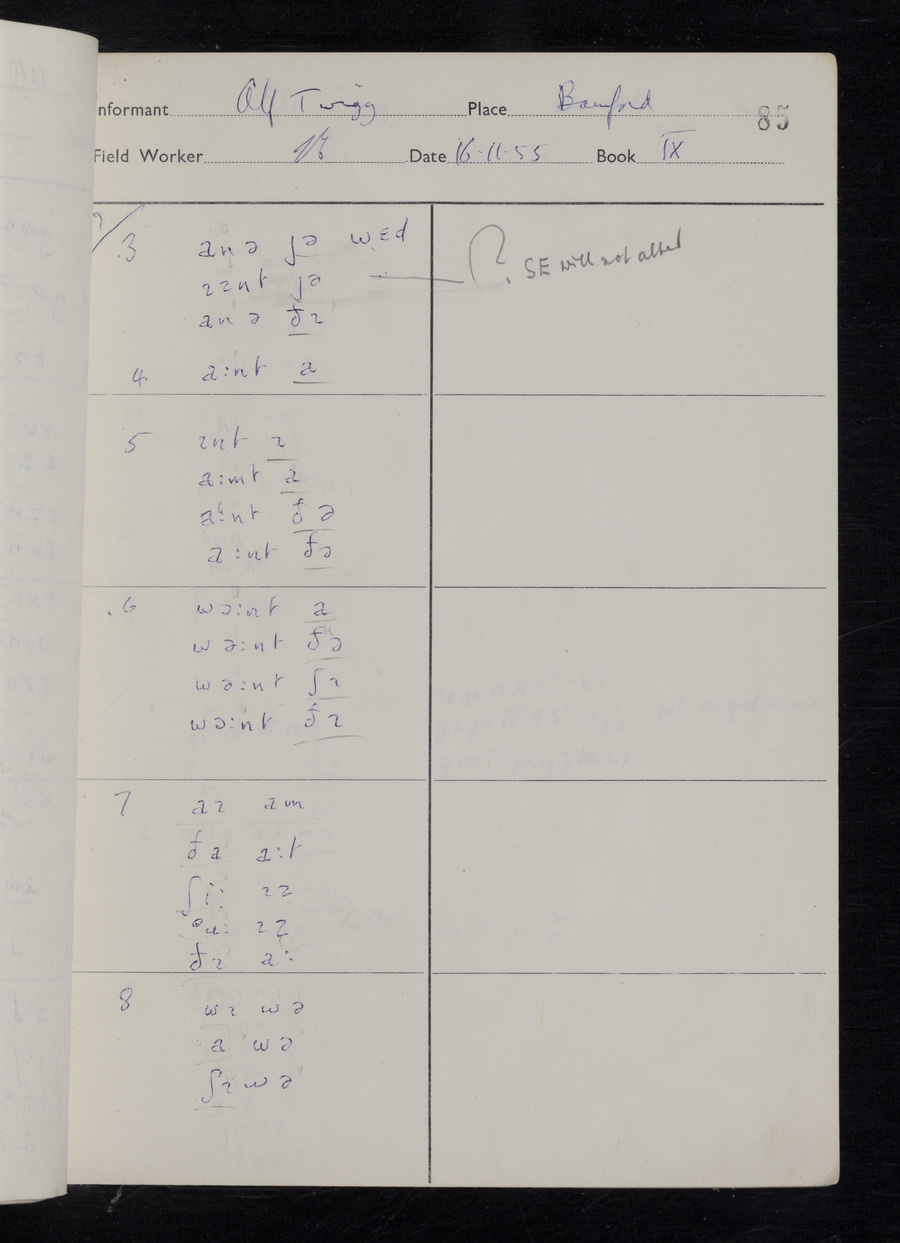 Informant Alf Twigg Place Bamford 85
Field Worker Date 16-11-55 Book IX
7/3 an ə ʃə wɛd
ɪznt ʃə
an ə ðɪ
? SE will not alter
4 a:nt a
5 ɪnt ɪ
a:mt a
a:nt ðə
a:nt ðə
6 wɔ:nt a
wə:nt ðə
wə:nt ʃɪ
wə:nt ðɪ
7 aɪ am
ða a:t
ʃi: ɪz
ɪz
ðɪ a:
8 wɪ wə
a wə
ʃɪ wə